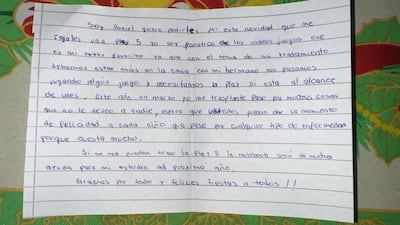 Soy Daniel quiero pedirles por esta navidad que me
regales una play 5 yo soy fanatico de los videos juegos ese
es mi hobby favorito ya que con el tema de mi tratamiento
debemos estar más en la casa con mi hermano nos pasamos
jugando algún juego y necesitamos la play si esta al alcance
de udes. Este año en marzo yo me trasplante pase por muchas cosas
que no le deseo a nadie, espero que ustedes puedan dar un momento
de felicidad a cada niño que pase por cualquier tipo de enfermedad
porque cuesta mucho.
Si no me pueden traer la Play 5 la notebook seria de mucha
ayuda para mi estudio del proximo año.
Gracias por todo y felices fiestas a todos !!